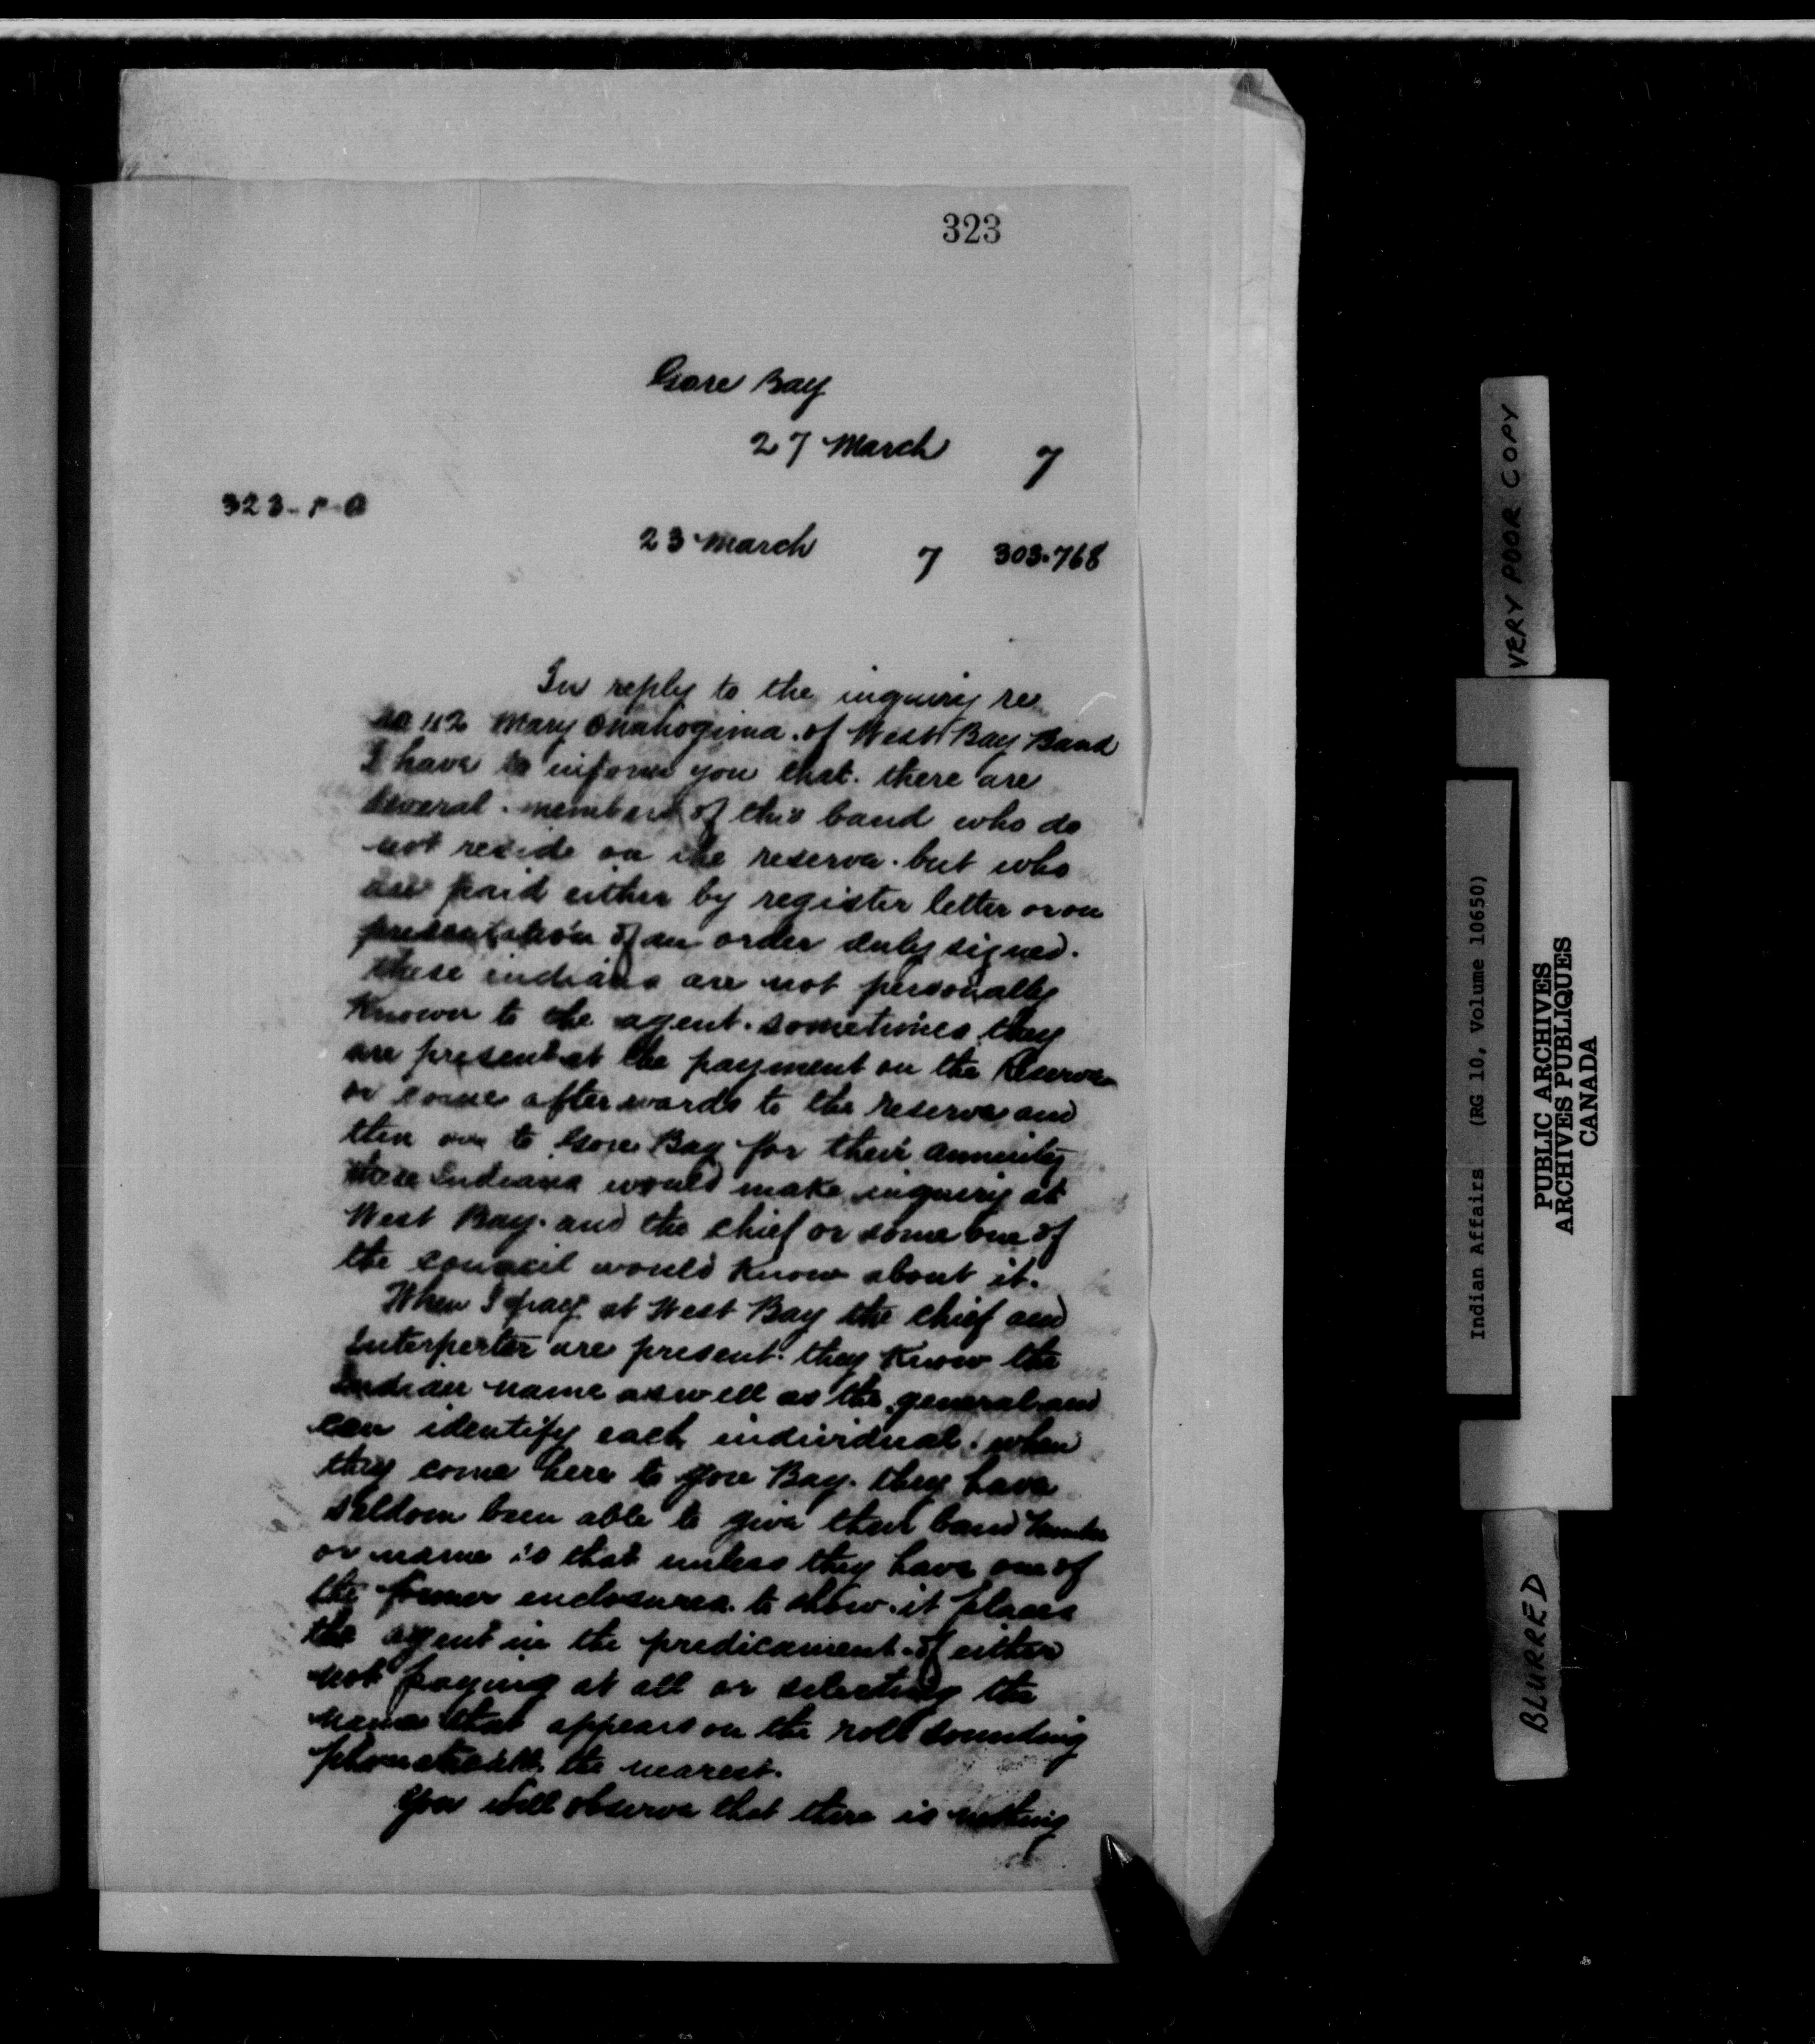 323
Gore Bay
27 March 7
323-P-O
23 March 7 303.768
In reply to the inquiry re
no 112 Mary of West Bay Band
I have to inform you that. there are
several members of this band who do
not reside on the reserve. but who
are paid either by register letter or on
presentation of an order duly signed.
these indians are not personally
known to the agent. sometimes they
are present at the payment on the Reserve
or come afterwards to the reserve and
then on to Gore Bay for their annuity
these Indians would make inquiry at
West Bay. and the chief or some one of
the council would know about it.
When I pay at West Bay the chief and
Interperter are present. they know the
Indian name as well as the general and
can identify each individual. when
they come here to Gore Bay. they have
seldom been able to give their band number
or name is that unless they have one of
the former enclosures. to show. it places
the agent in the predicament of either
not paying at all or selecting the
name that appears on the roll sounding
the nearest.
You will observe that there is nothing
VERY POOR COPY
Indian Affairs (RG 10, Volume 10650)
PUBLIC ARCHIVES
ARCHIVES PUBLIQUES
CANADA
BLURRED